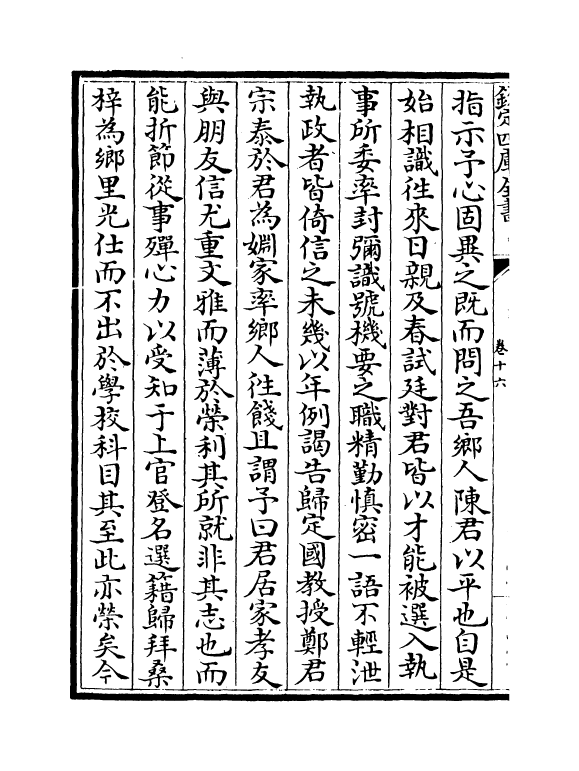 欽定四庫全書
卷十六
指示予心固異之既而問之吾鄉人陳君以平也自是
始相識徃來日親及春試廷對君皆以才能被選入執
事所委率封彌識號機要之職精勤慎密一語不輕泄
執政者皆倚信之未幾以年例謁告歸定國教授鄭君
宗泰於君為婣家率鄉人徃餞且謂予曰君居家孝友
與朋友信尤重文雅而薄於榮利其所就非其志也而
能折節從事殫心力以受知于上官登名選籍歸拜桑
梓為鄉里光仕而不出於學校科目其至此亦榮矣今